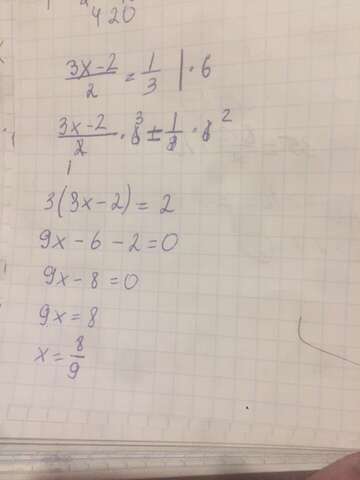 420
(3x-2)/2 = 1/3 | · 6
(3x-2)/2 · 6 3 = 1/3 · 6 2
1
3(3x-2) = 2
9x-6-2=0
9x-8=0
9x=8
x=8/9